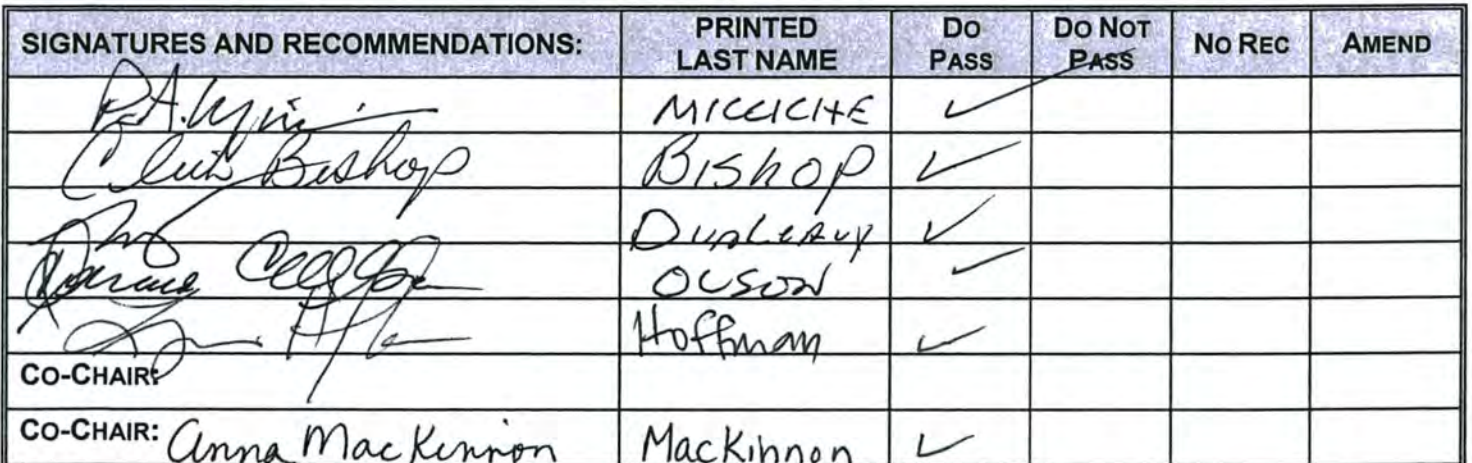 SIGNATURES AND RECOMMENDATIONS: PRINTED LAST NAME DO PASS DO NOT PASS NO REC AMEND
MICCICHE ✓
Click Bishop BISHOP ✓
DUNLEAVY ✓
OLSON ✓
Hoffman ✓
CO-CHAIR:
CO-CHAIR: Anna MacKinnon MacKinnon ✓